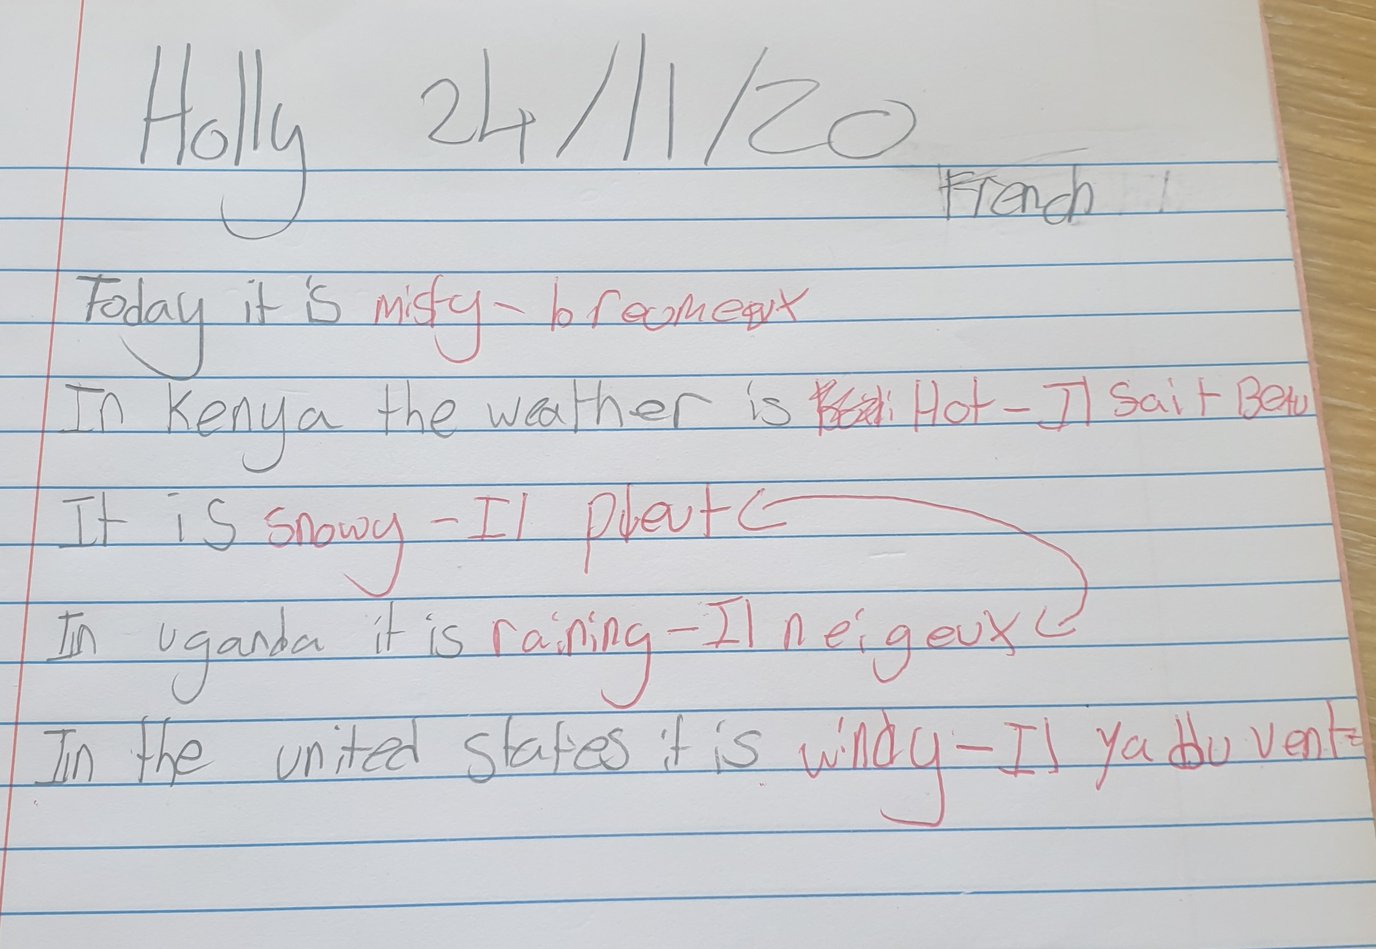 Holly 24/11/20
French
Today it is misty - breomeux
In Kenya the weather is Hot - Il Sait Beau
It is snowy - Il pleut
In uganda it is raining - Il neigeux
In the united states it is windy - Il ya du vent